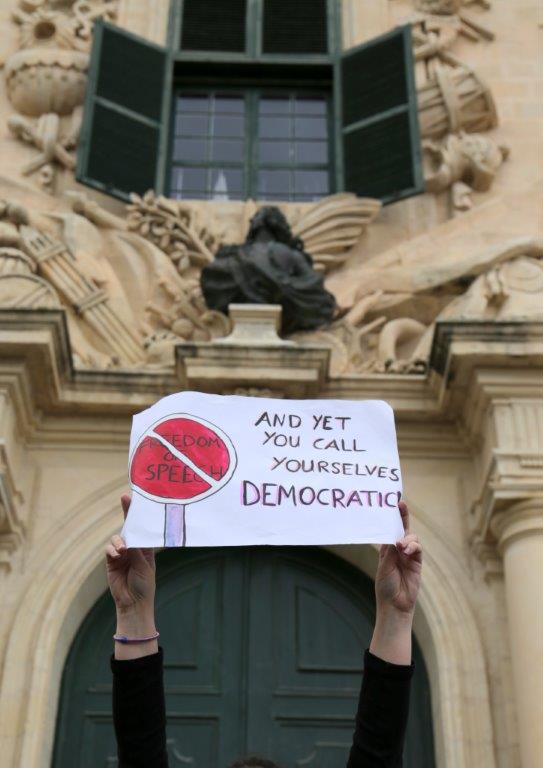 FREEDOM
OF
SPEECH
AND YET
YOU CALL
YOURSELVES
DEMOCRATIC